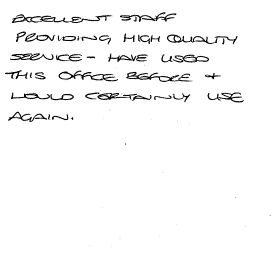 EXCELLENT STAFF
PROVIDING HIGH QUALITY
SERVICE - HAVE USED
THIS OFFICE BEFORE +
WOULD CERTAINLY USE
AGAIN.